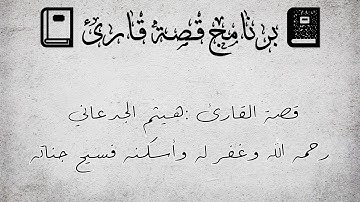 برنامج قصة قارئ
قصة القارئ :هيثم الجدعاني
رحمه الله وغفر له وأسكنه فسيح جناته